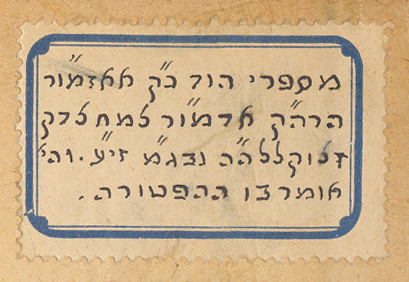 מספרי הוד כ"ק אאזמו"ר
הרה"ק אדמו"ר צמח צדק
זצוקללה"ה נבג"מ זי"ע. והי'
אומר בו ההפטורה.